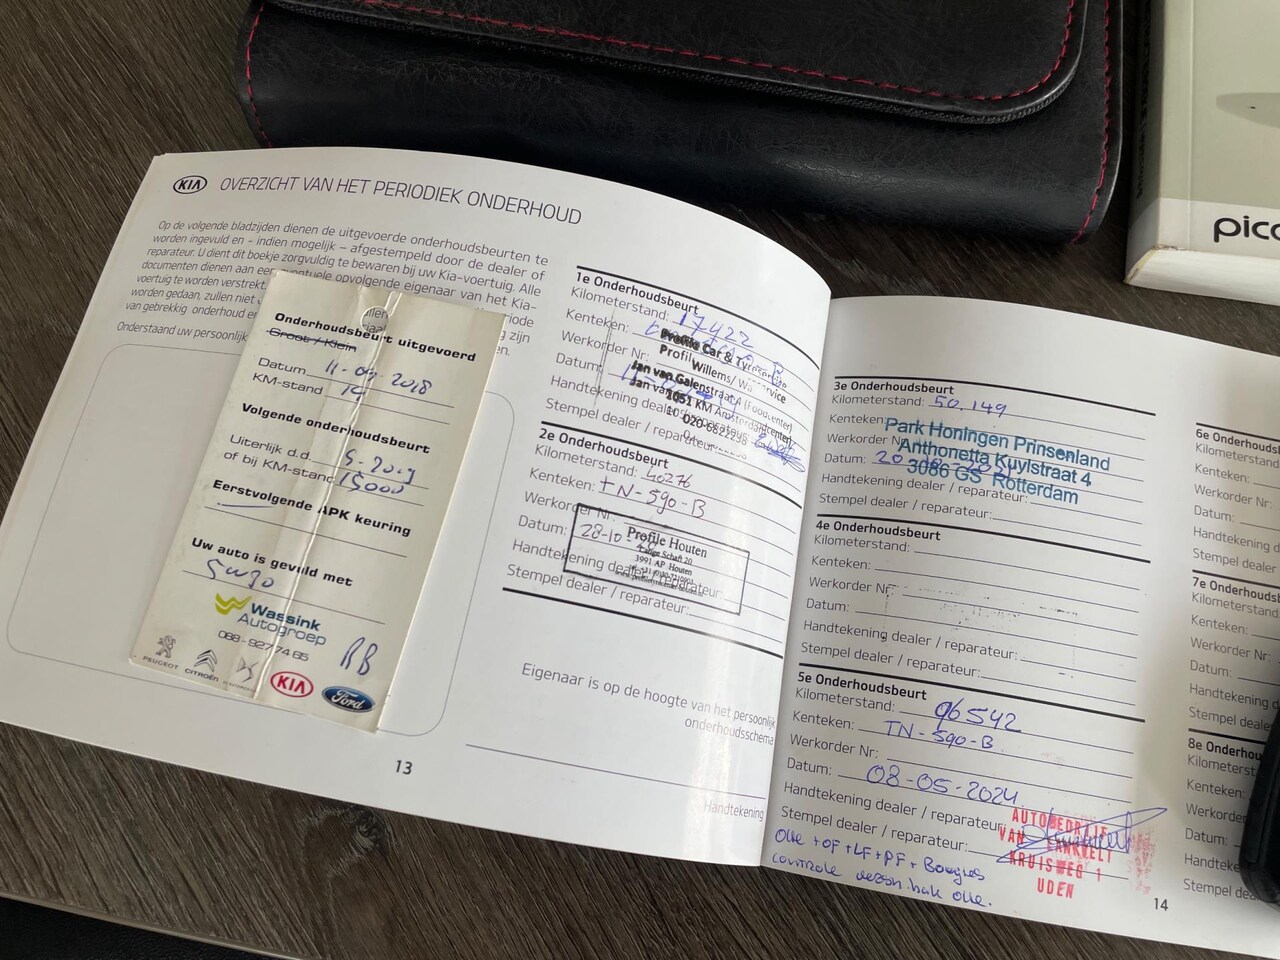 KIA OVERZICHT VAN HET PERIODIEK ONDERHOUD
Op de volgende bladzijden dienen de uitgevoerde onderhoudsbeurten te
worden ingevuld en - indien mogelijk - afgestempeld door de dealer of
reparateur. U dient dit boekje zorgvuldig te bewaren bij uw Kia-voertuig. Alle
documenten dienen aan een eventuele opvolgende eigenaar van het Kia-
voertuig te worden verstrekt
worden gedaan, zullen niet
van gebrekkig onderhoud en
zijn
Onderstaand uw persoonlijk
Onderhoudsbeurt uitgevoerd
Groot / Klein
Datum 11-09-2018
KM-stand
Volgende onderhoudsbeurt
Uiterlijk d.d. 9-2019
of bij KM-stand 15000
Eerstvolgende APK keuring
Uw auto is gevuld met
5W30
Wassink
Autogroep
088-9277465
RB
PEUGEOT CITROËN KIA Ford
1e Onderhoudsbeurt
Kilometerstand: 17422
Kenteken:
Werkorder Nr:
Datum:
Handtekening dealer
Stempel dealer / reparateur:
Profile Car & Tyreservice
Jan van Galenstraat
1051 KM Amsterdam
020-6822298
2e Onderhoudsbeurt
Kilometerstand: 40276
Kenteken: TN-590-B
Werkorder Nr:
Datum: 28-10-
Handtekening dealer / reparateur:
Stempel dealer / reparateur:
Profile Houten
Schaft 20
3991 AP Houten
Eigenaar is op de hoogte van het persoonlijk
onderhoudsschema
Handtekening
13
3e Onderhoudsbeurt
Kilometerstand: 50.149
Kenteken:
Werkorder Nr:
Datum: 20
Handtekening dealer / reparateur:
Stempel dealer / reparateur:
Park Honingen Prinsenland
Anthonetta Kuylstraat 4
3066 GS Rotterdam
4e Onderhoudsbeurt
Kilometerstand:
Kenteken:
Werkorder Nr:
Datum:
Handtekening dealer / reparateur:
Stempel dealer / reparateur:
5e Onderhoudsbeurt
Kilometerstand: 96542
Kenteken: TN-590-B
Werkorder Nr:
Datum: 08-05-2024
Handtekening dealer / reparateur:
Stempel dealer / reparateur:
AUTOBEDRIJF
VAN
KRUISWEG 1
UDEN
Olie + OF + LF + PF + Bougies
controle olie.
14
6e Onderhouds
Kilometerst
Kenteken:
Werkorder Nr:
Datum:
Handtekening d
Stempel dealer
7e Onderhouds
Kilometersta
Kenteken:
Werkorder Nr:
Datum:
Handtekening
Stempel deale
8e Onderhou
Kilometerst
Kenteken:
Werkorder
Datum:
Handteke
Stempel de
pica